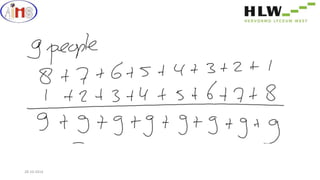 AIMS
HLW
HERVORMD LYCEUM WEST
9 people
8+7+6+5+4+3+2+1
1+2+3+4+5+6+7+8
9+9+9+9+9+9+9+9